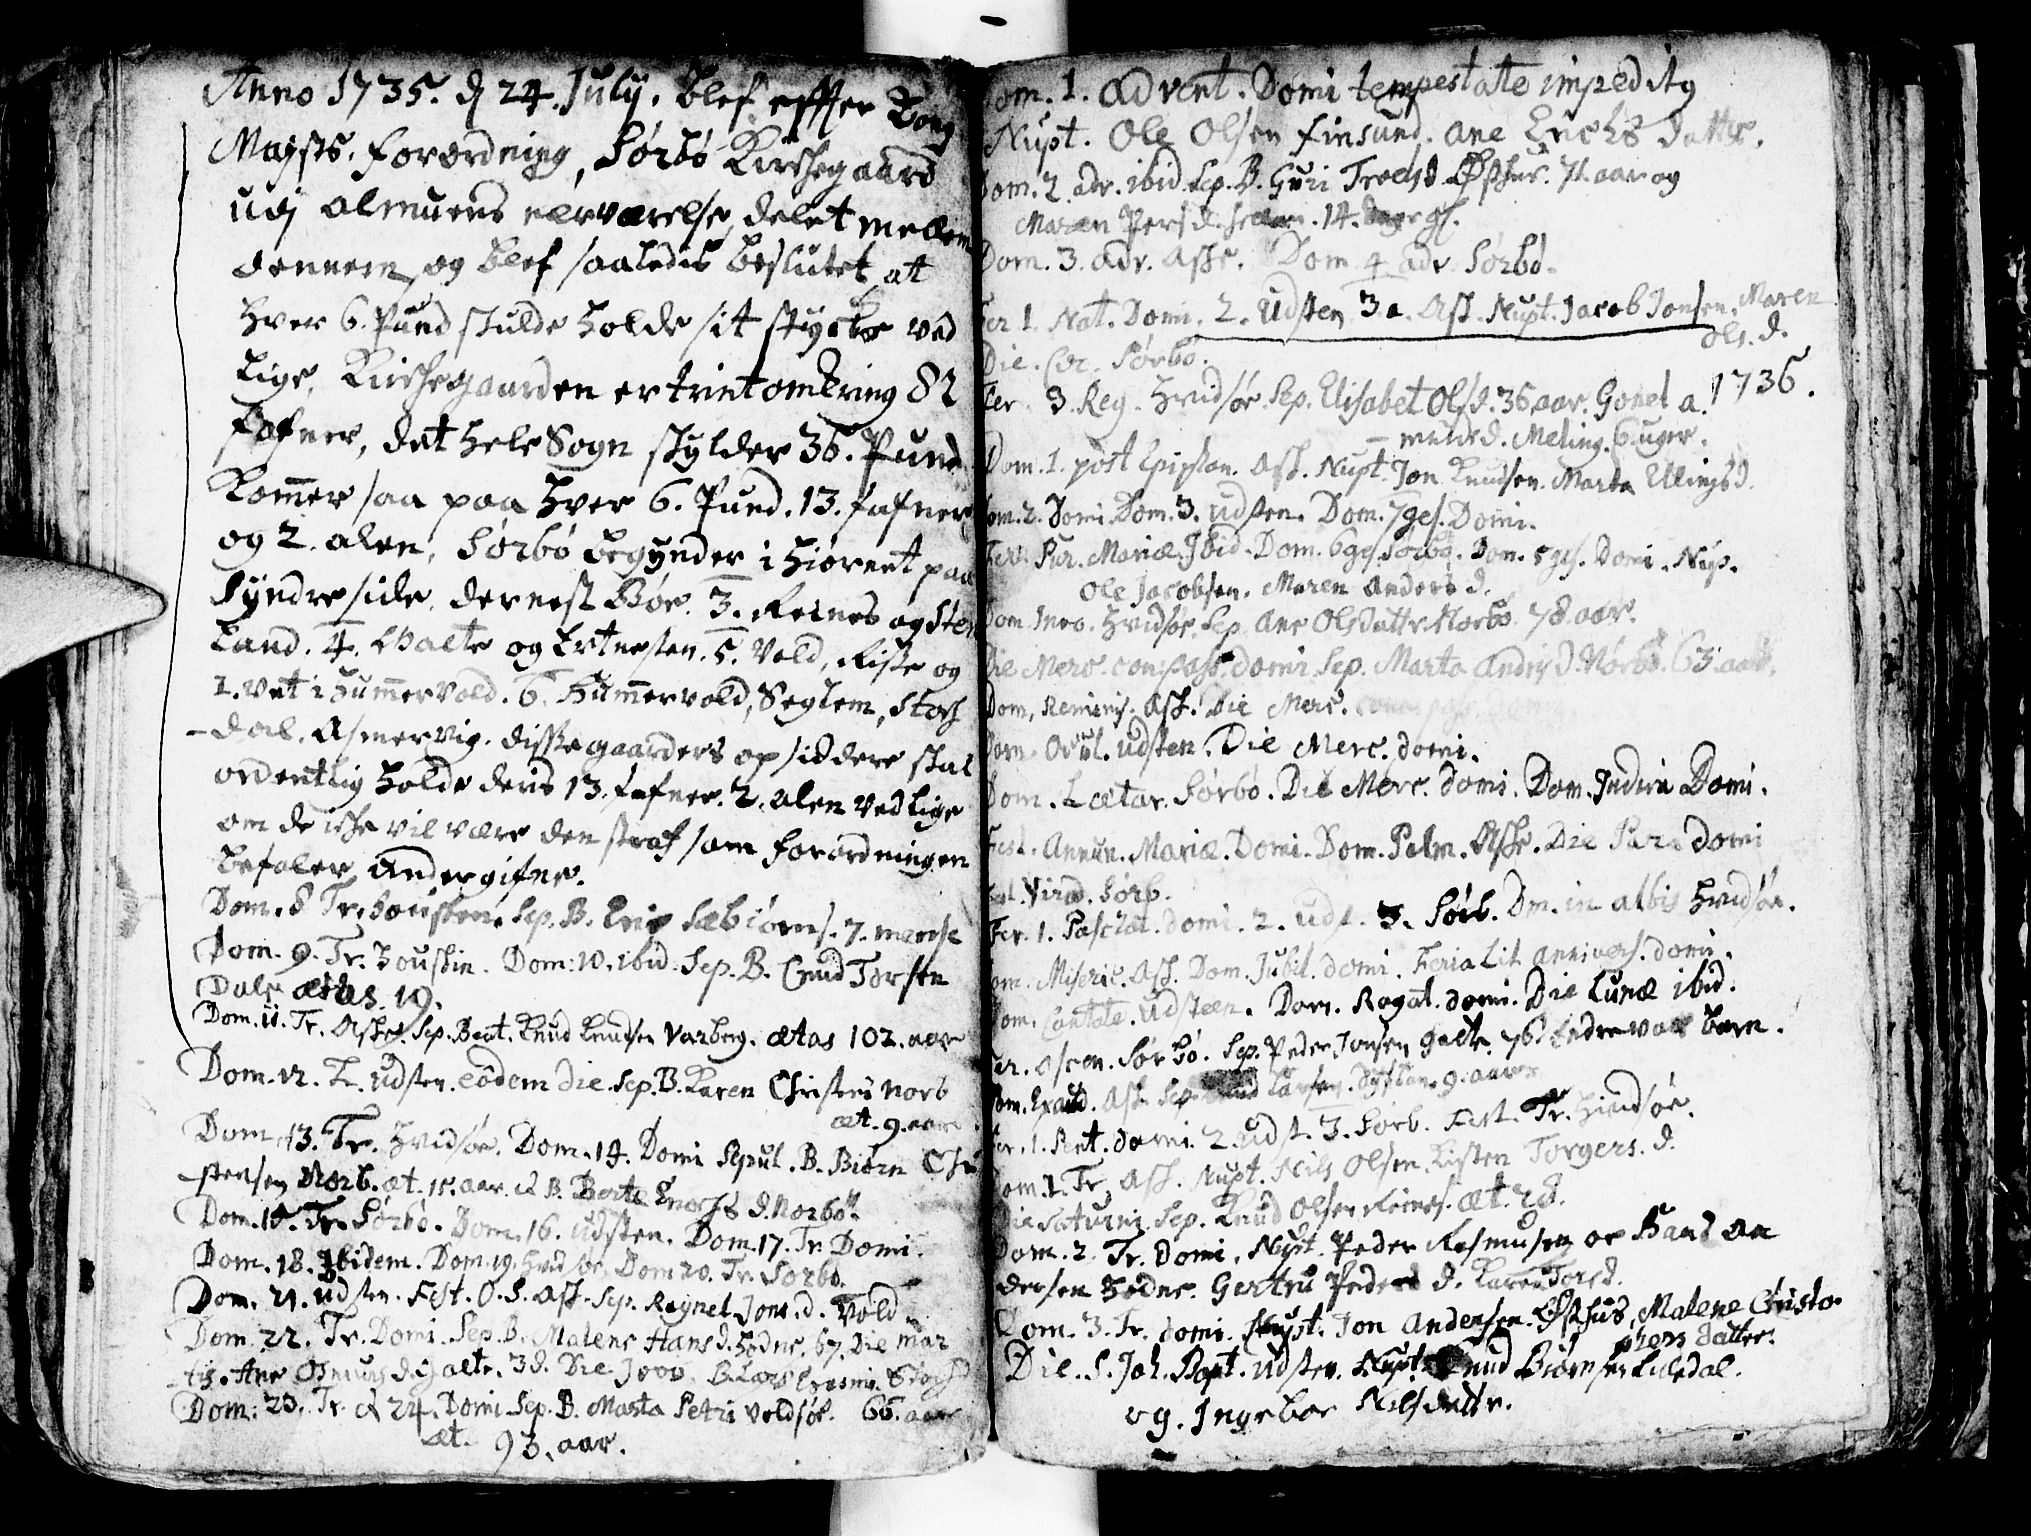 Anno 1735. d 24. July. blef effter Kong
Majsts. forordning, Sørbø Kirchegaard
udj almuens nerværelse, delet mellem
dennem, og blef saaledis beslutet, at
hver 6. Pund skulde holde sit stycke ved
lige, Kirchegaarden er trint omkring 82
fafner, det hele Sogn skylder 36. Pund
kommer saa paa hver 6. Pund. 13. fafner
og 2. alen, Sørbø begynder i hiørnet paa
Syndre side. dernest Bøe. 3. Reines og Sten
Land. 4. Galte og Ertnesten. 5. Vold, Riske og
1. vet i Hummervold. 6. Hummervold, Seglem, Stoch
-dal, Asmervig. disse gaarders opsiddere skal
ordentlig holde deris 13. fafner. 2. alen ved lige
om de iche vil være den straf som forordningen
befaler undergifne.
Dom. 8 Tr. housken. Sep. B. Sæbiørns. 7.
Dom. 9. Tr. houskin. Dom. 10. ibid. Sep. B. Cnud Torsten
Dale ætas 19.
Dom. 11. Tr. Aske. Sep. Beat. Knud Knudsen Varberg. ætas 102. aar
Dom. 12. Tr. Udsten. eodem die. Sep. B. Karen Christens Norb
æt. 9. aar
Dom. 13. Tr. Hvidsøe. Dom. 14. Domi Sepul. B. Biørn Chri
stensen Norb. æt. 15. aar. & B. Berte Enochs d. Norbø.
Dom. 15. Tr. Sørbø. Dom. 16. Udsten. Dom. 17. Tr. Domi.
Dom. 18. Ibidem. Dom. 19. Hvidsøe. Dom 20. Tr. Sørbø.
Dom. 21. Udsten. Fest. O. S. Ask. Sep. Ragnel Jons. d. Vold.
Dom. 22. Tr. Domi. Sep. B. Malene Hans d. Hodne. 67. Die Mar
-tis. Ane d. Galte. 38. Die Jov. B. Lars
Dom: 23. Tr. & 24. Domi. Sep. B. Marta Petri Voldsøe. 66. aar
æt. 93. aar.
om. 1. advent. Domi tempestate impeditg
Nupt. Ole Olsen Finsund. Ane Erichs datter.
Dom. 2 adv. ibid. Sep. B. Guri Troels d. Østhus. 71. aar og
Maren Pers d. 14. dage gl.
Dom. 3. adv. Aske. Dom 4 adv. Sørbø.
Fer 1. Nat. Domi. 2. Udsten 3 a. Ask. Nupt. Jacob Jonsen. Maren
Ols. d.
Die. Cir. Sørbø.
1736.
Fer. 3. Reg. Hvidsøe. Sep. Elisabet Ols d. 36. aar. Gonel a.
d. Meling. 6 uger.
Dom. 1. post Epiphan. Ask. Nupt. Jon Knudsen. Marta Ellings d.
om. 2. Domi. Dom. 3. Udsten. Dom. 7ges. Domi.
Fer. Pur. Mariæ. Ibid. Dom. 6ges. Sørbø. Dom. 5ges. Domi. Nup.
Ole Jacobsen. Maren Anders d.
Dom. Invo. Hvidsøe. Sep. Ane Olsdatter Norbø. 78. aar.
Die Merc. domi. Sep. Marta Andris d. Norbø. 63. aar.
Dom. Reminis. Ask. Die Merc.
Dom. Ocul. Udsten. Die Merc. domi.
Dom. Lætar. Sørbø. Die Merc. domi. Dom. Judica Domi.
Fest. Annun. Mariæ. Domi. Dom. Palm. Aske. Die domi
Vird. Sørb.
Fer. 1. Paschat. domi. 2. Udst. 3. Sørb. Dm. in albis Hvidsøe.
om. Miseric. Ask. Dom. Jubil. domi. Feria Lit. annivers. domi.
om. Cantate. Udsteen. Dom. Rogat. domi. Die Lunæ ibid.
er. Ascen. Sørbø. Sep. Peder Jonsen Galte. 76. barn.
om. Exaud. Ask. Sep. 9. aar
er. 1. Pent. domi. 2. Udst. 3. Sørb. Fest. Tr. Hvidsøe.
om. 1. Tr. Ask. Nupt. Nils Olsen. Kisten Torgers. d.
Die Saturni. Sep. Knud Olsen Reines. æt. 28.
Dom. 2. Tr. domi. Nupt. Peder Rasmusen oc Baard An
dersen Hodne. Gertru Peders d. Karen Tores d.
Dom. 3. Tr. domi. Nupt. Jon Andersen Østhus, Malene Christo-
phers datter.
Die. S. Joh. Bapt. Udsten. Nupt. Knud Biørnsen Lilledal.
og. Ingebor Nilsdatter.